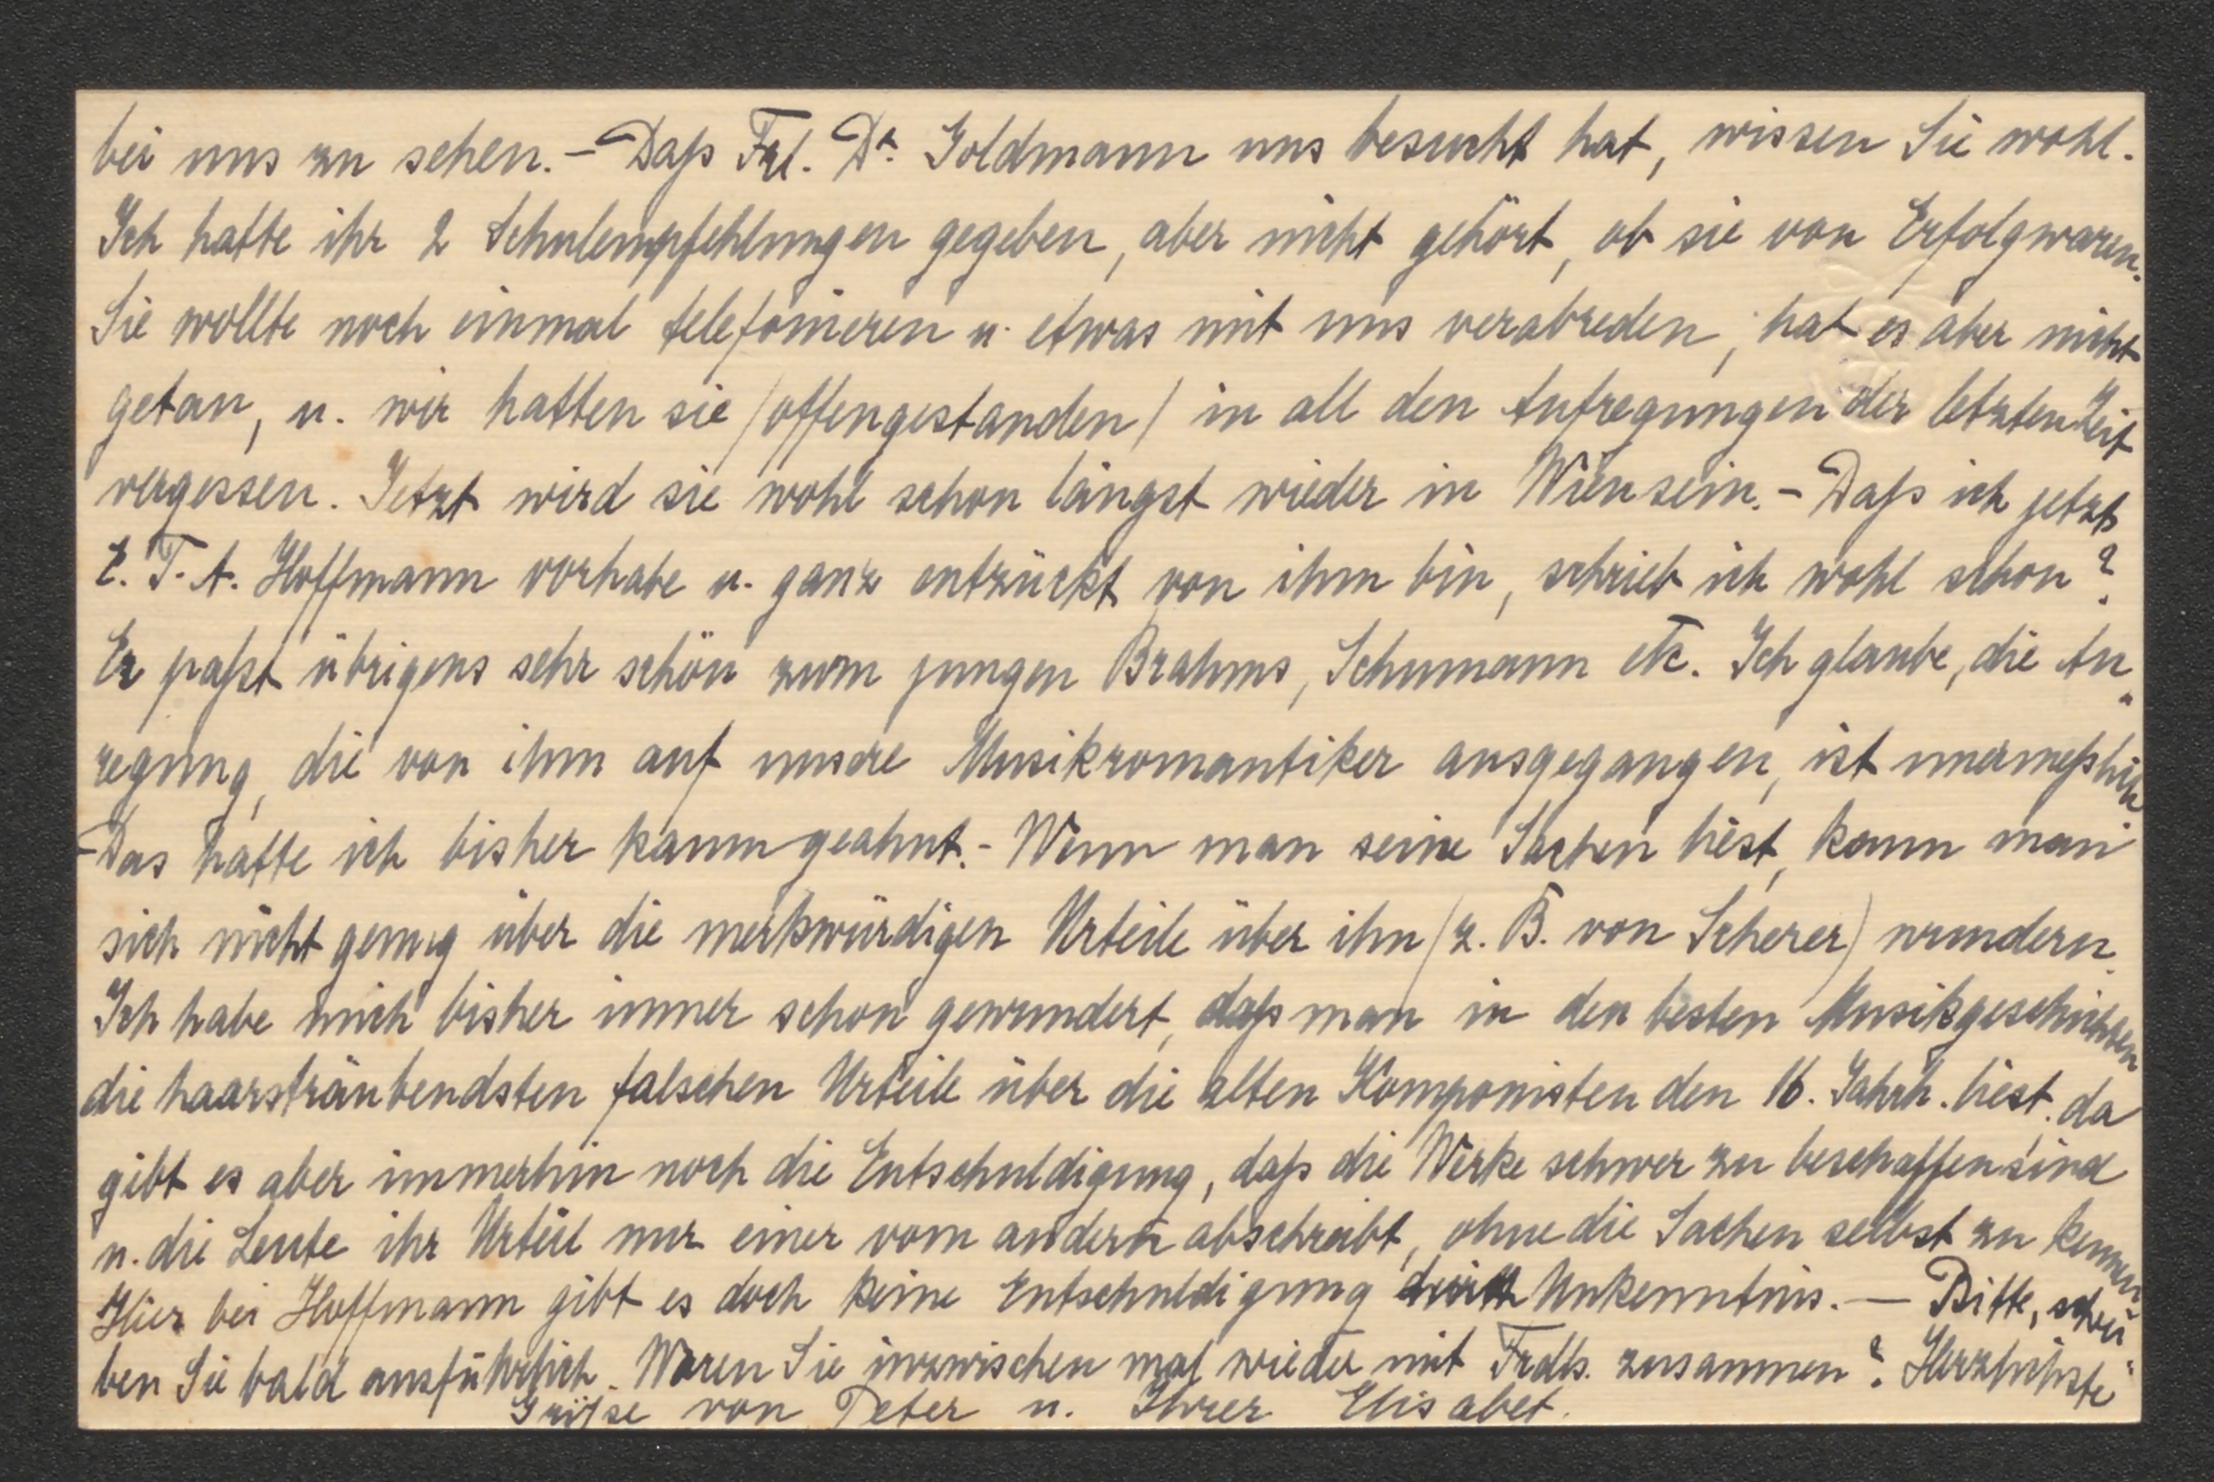 bei uns zu sehen. – Daß Frl. Dr. Goldmann uns besucht hat, wissen Sie wohl.
Ich hatte ihr 2 Schulempfehlungen gegeben, aber nicht gehört, ob sie von Erfolg waren.
Sie wollte noch einmal telefonieren u. etwas mit uns verabreden, hat es aber nicht
getan, u. wir hatten sie /offengestanden/ in all den Aufregungen der letzten Zeit
vergessen. Jetzt wird sie wohl schon längst wieder in Wien sein. – Daß ich jetzt
E. T. A. Hoffmann vorhabe u. ganz entzückt von ihm bin, schrieb ich wohl schon?
Er paßt übrigens sehr schön zum jungen Brahms, Schumann etc. Ich glaube, die An-
regung, die von ihm auf unsere Musikromantiker ausgegangen, ist unermeßlich
– Das hatte ich bisher kaum geahnt. – Wenn man seine Sachen liest, kann man
sich nicht genug über die merkwürdigen Urteile über ihn (z. B. von Scherer) wundern.
Ich habe mich bisher immer schon gewundert, daß man in den besten Musikgeschichten
die haarsträubendsten falschen Urteile über die alten Komponisten den 16. Jahrh. liest, da
gibt es aber immerhin noch die Entschuldigung, daß die Werke schwer zu beschaffen sind
u. die Leute ihr Urteil nur einer vom andern abschreibt, ohne die Sachen selbst zu kennen
Hier bei Hoffmann gibt es doch keine Entschuldigung durch Unkenntnis. — Bitte, schrei-
ben Sie bald ausführlich. Waren Sie inzwischen mal wieder mit Frdls. zusammen? Herzlichste
Grüße von Peter u. Ihrer Elisabet.